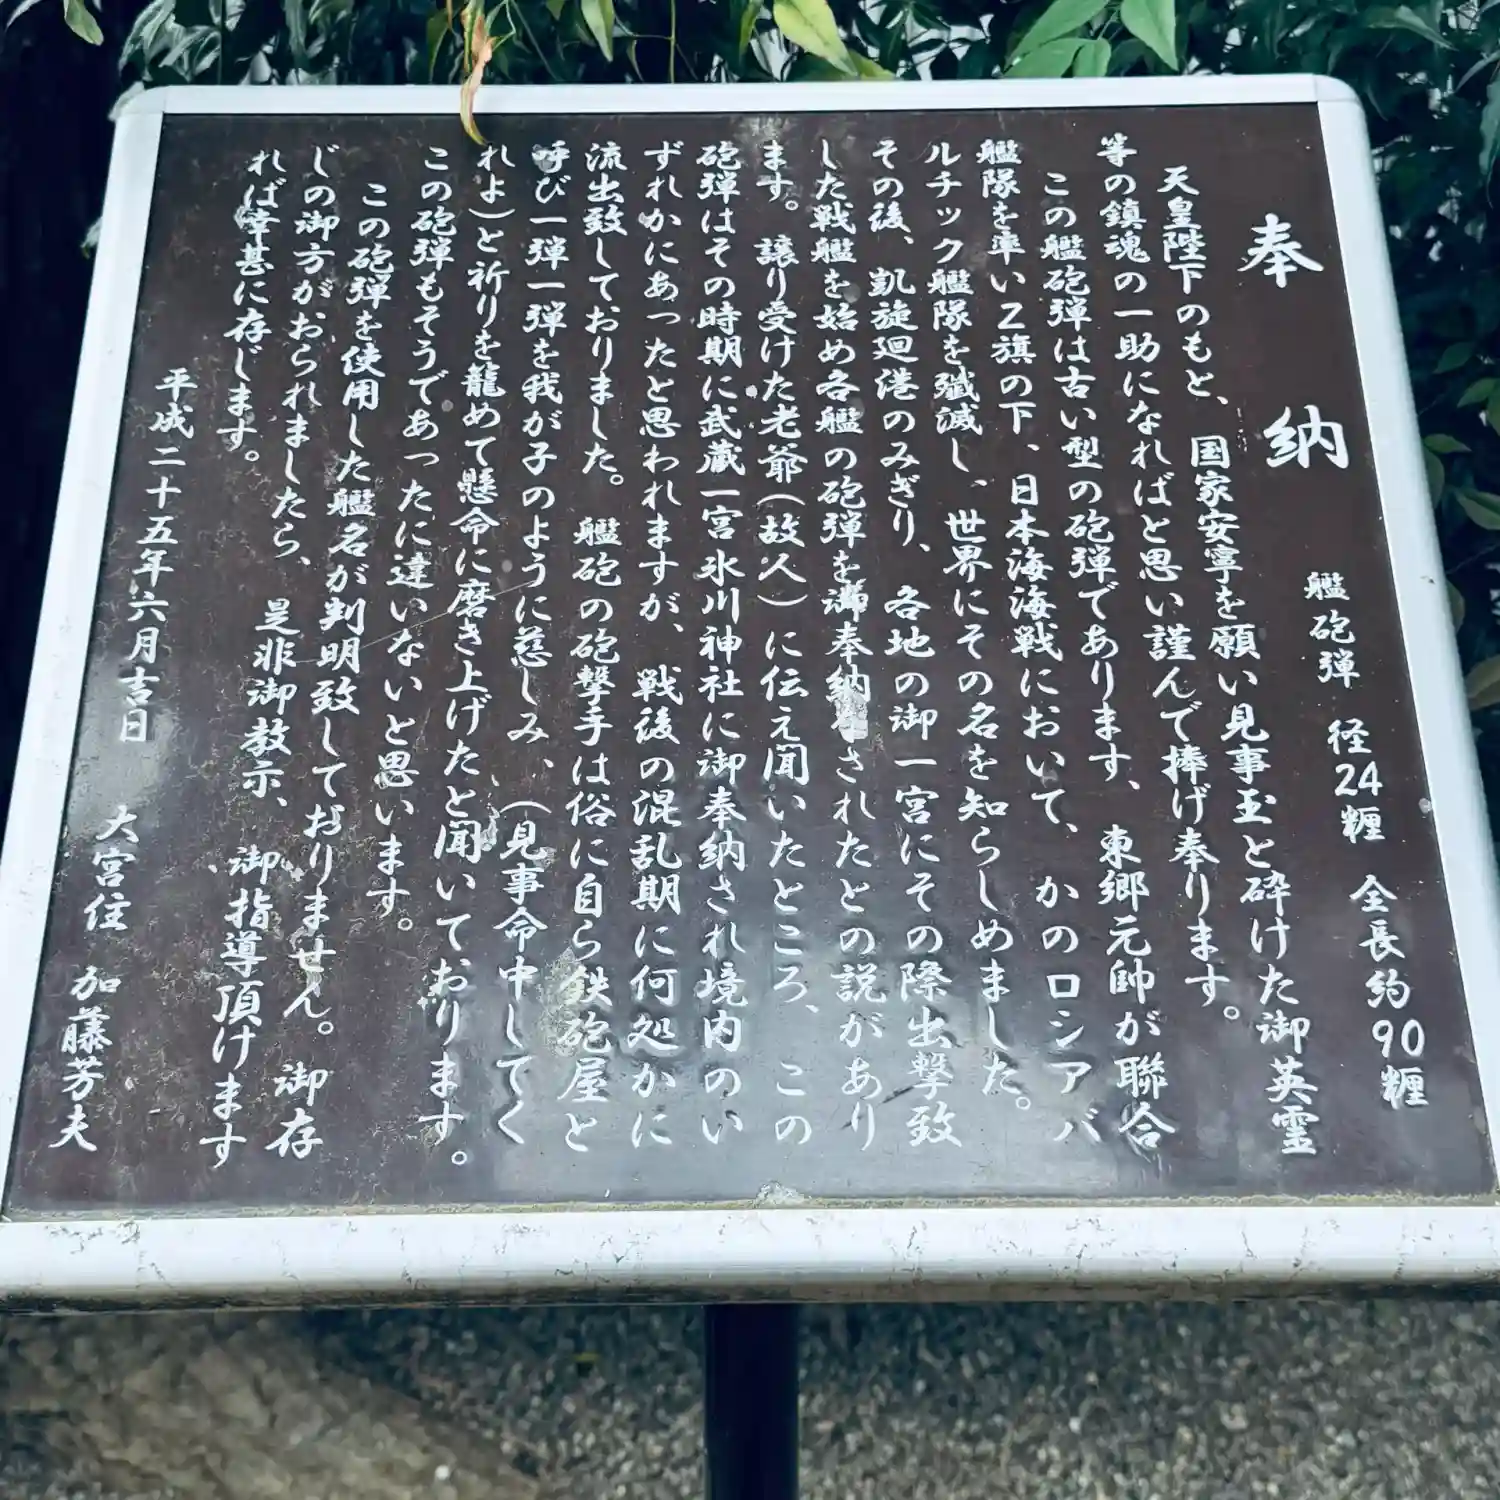 奉納
艦砲弾 径24糎 全長約90糎
天皇陛下のもと、国家安寧を願い見事玉と砕けた御英霊
等の鎮魂の一助になればと思い謹んで捧げ奉ります。
この艦砲弾は古い型の砲弾であります、東郷元帥が聯合
艦隊を率いZ旗の下、日本海海戦において、かのロシアバ
ルチック艦隊を殲滅し、世界にその名を知らしめました。
その後、凱旋廻港のみぎり、各地の御一宮にその際出撃致
した戦艦を始め各艦の砲弾を御奉納されたとの説があり
ます。譲り受けた老爺(故人)に伝え聞いたところ、この
砲弾はその時期に武蔵一宮氷川神社に御奉納され境内のい
ずれかにあったと思われますが、戦後の混乱期に何処かに
流出致しておりました。艦砲の砲撃手は俗に自ら鉄砲屋と
呼び一弾一弾を我が子のように慈しみ、(見事命中してく
れよ)と祈りを籠めて懸命に磨き上げたと聞いております。
この砲弾もそうであったに違いないと思います。
この砲弾を使用した艦名が判明致しておりません。御存
じの御方がおられましたら、是非御教示、御指導頂けます
れば幸甚に存じます。
平成二十五年六月吉日 大宮住 加藤芳夫